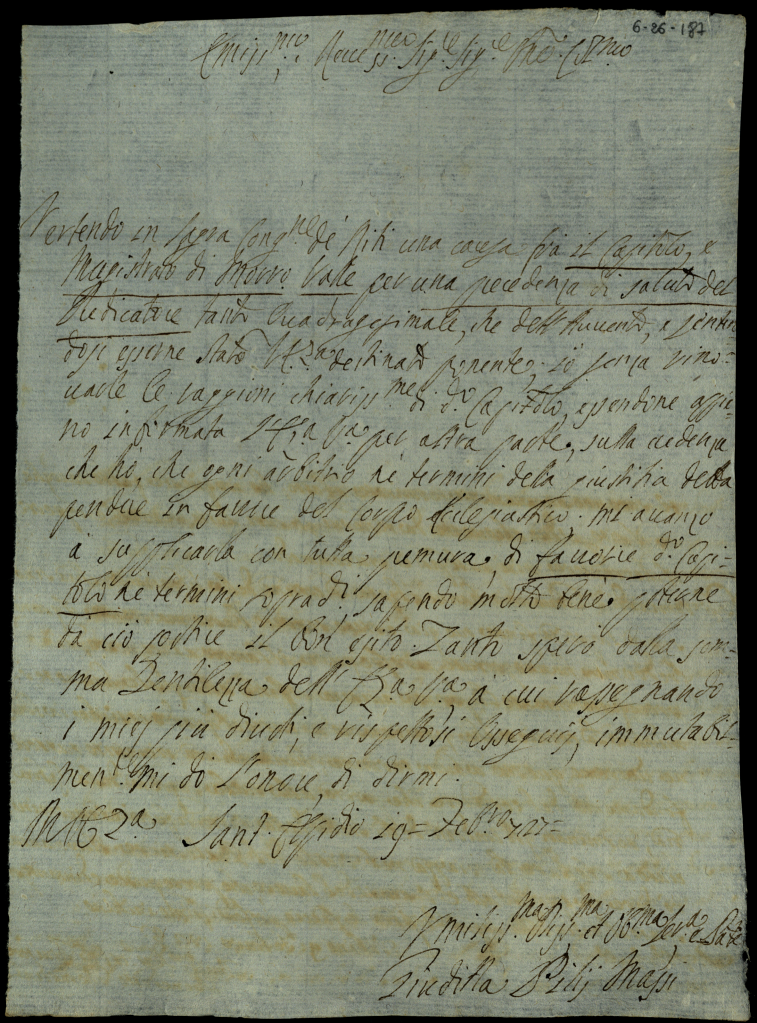 6-26-187
Emin.mo e Rev.mo Sig.re Sig.re P̃ne Col.mo
Vertendo in sagra Cong.ne de Riti una causa fra il Capitolo, e
Magistrato di Morro Valle per una precedenza di saluto del
Predicatore tanto Quadragesimale, che dell'Avvento, e senten-
dosi esserne stato l'E. V.ra destinato ponente, io senza rino-
varle le raggioni chiariss.me di d.o Capitolo, essendone appie-
no informata l'E. V.ra per altra parte, sulla credenza
che hò, che ogni arbitrio né termini della giustitia debba
pendere in favore del Corpo Ecclesiastico. mi avanzo
à supplicarla con tutta premura, di favorire d.o Capi-
tolo né termini sopradi. sapendo molto bene poterne
da ciò sortire il bon esito. Tanto spero dalla som-
ma Gentilezza dell' à cui rassegnando
i miei più divoti, e rispettosi Ossequij, immutabil-
men.te mi dò l'onore di dirmi.
Sant' Elpidio 19= Febro 727=
Umiliss.ma Div.ma et Obl.ma Serva
Giuditta Pilij Massi